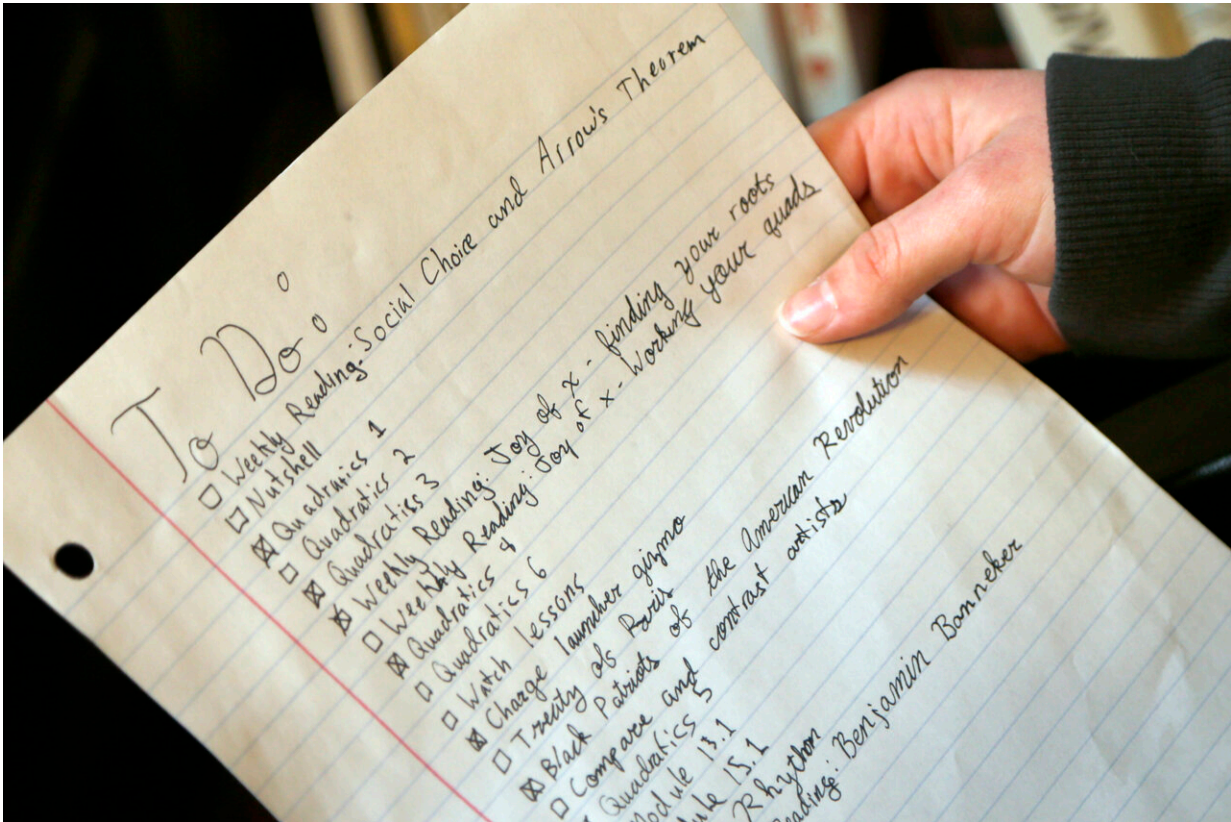 To Do:
☐ Weekly Reading: Social Choice and Arrow's Theorem
☐ Nutshell
☒ Quadratics 1
☐ Quadratics 2
☒ Quadratics 3
☒ Weekly Reading: Joy of x - finding your roots
☐ Weekly Reading: Joy of x - Working your quads
☒ Quadratics 4
☐ Quadratics 6
☐ Watch lessons
☒ Charge launcher gizmo
☐ Treaty of Paris
☒ Black Patriots of the American Revolution
☐ Compare and contrast artists
Quadratics 5
Module 13.1
15.1
Rhython
Reading: Benjamin Banneker